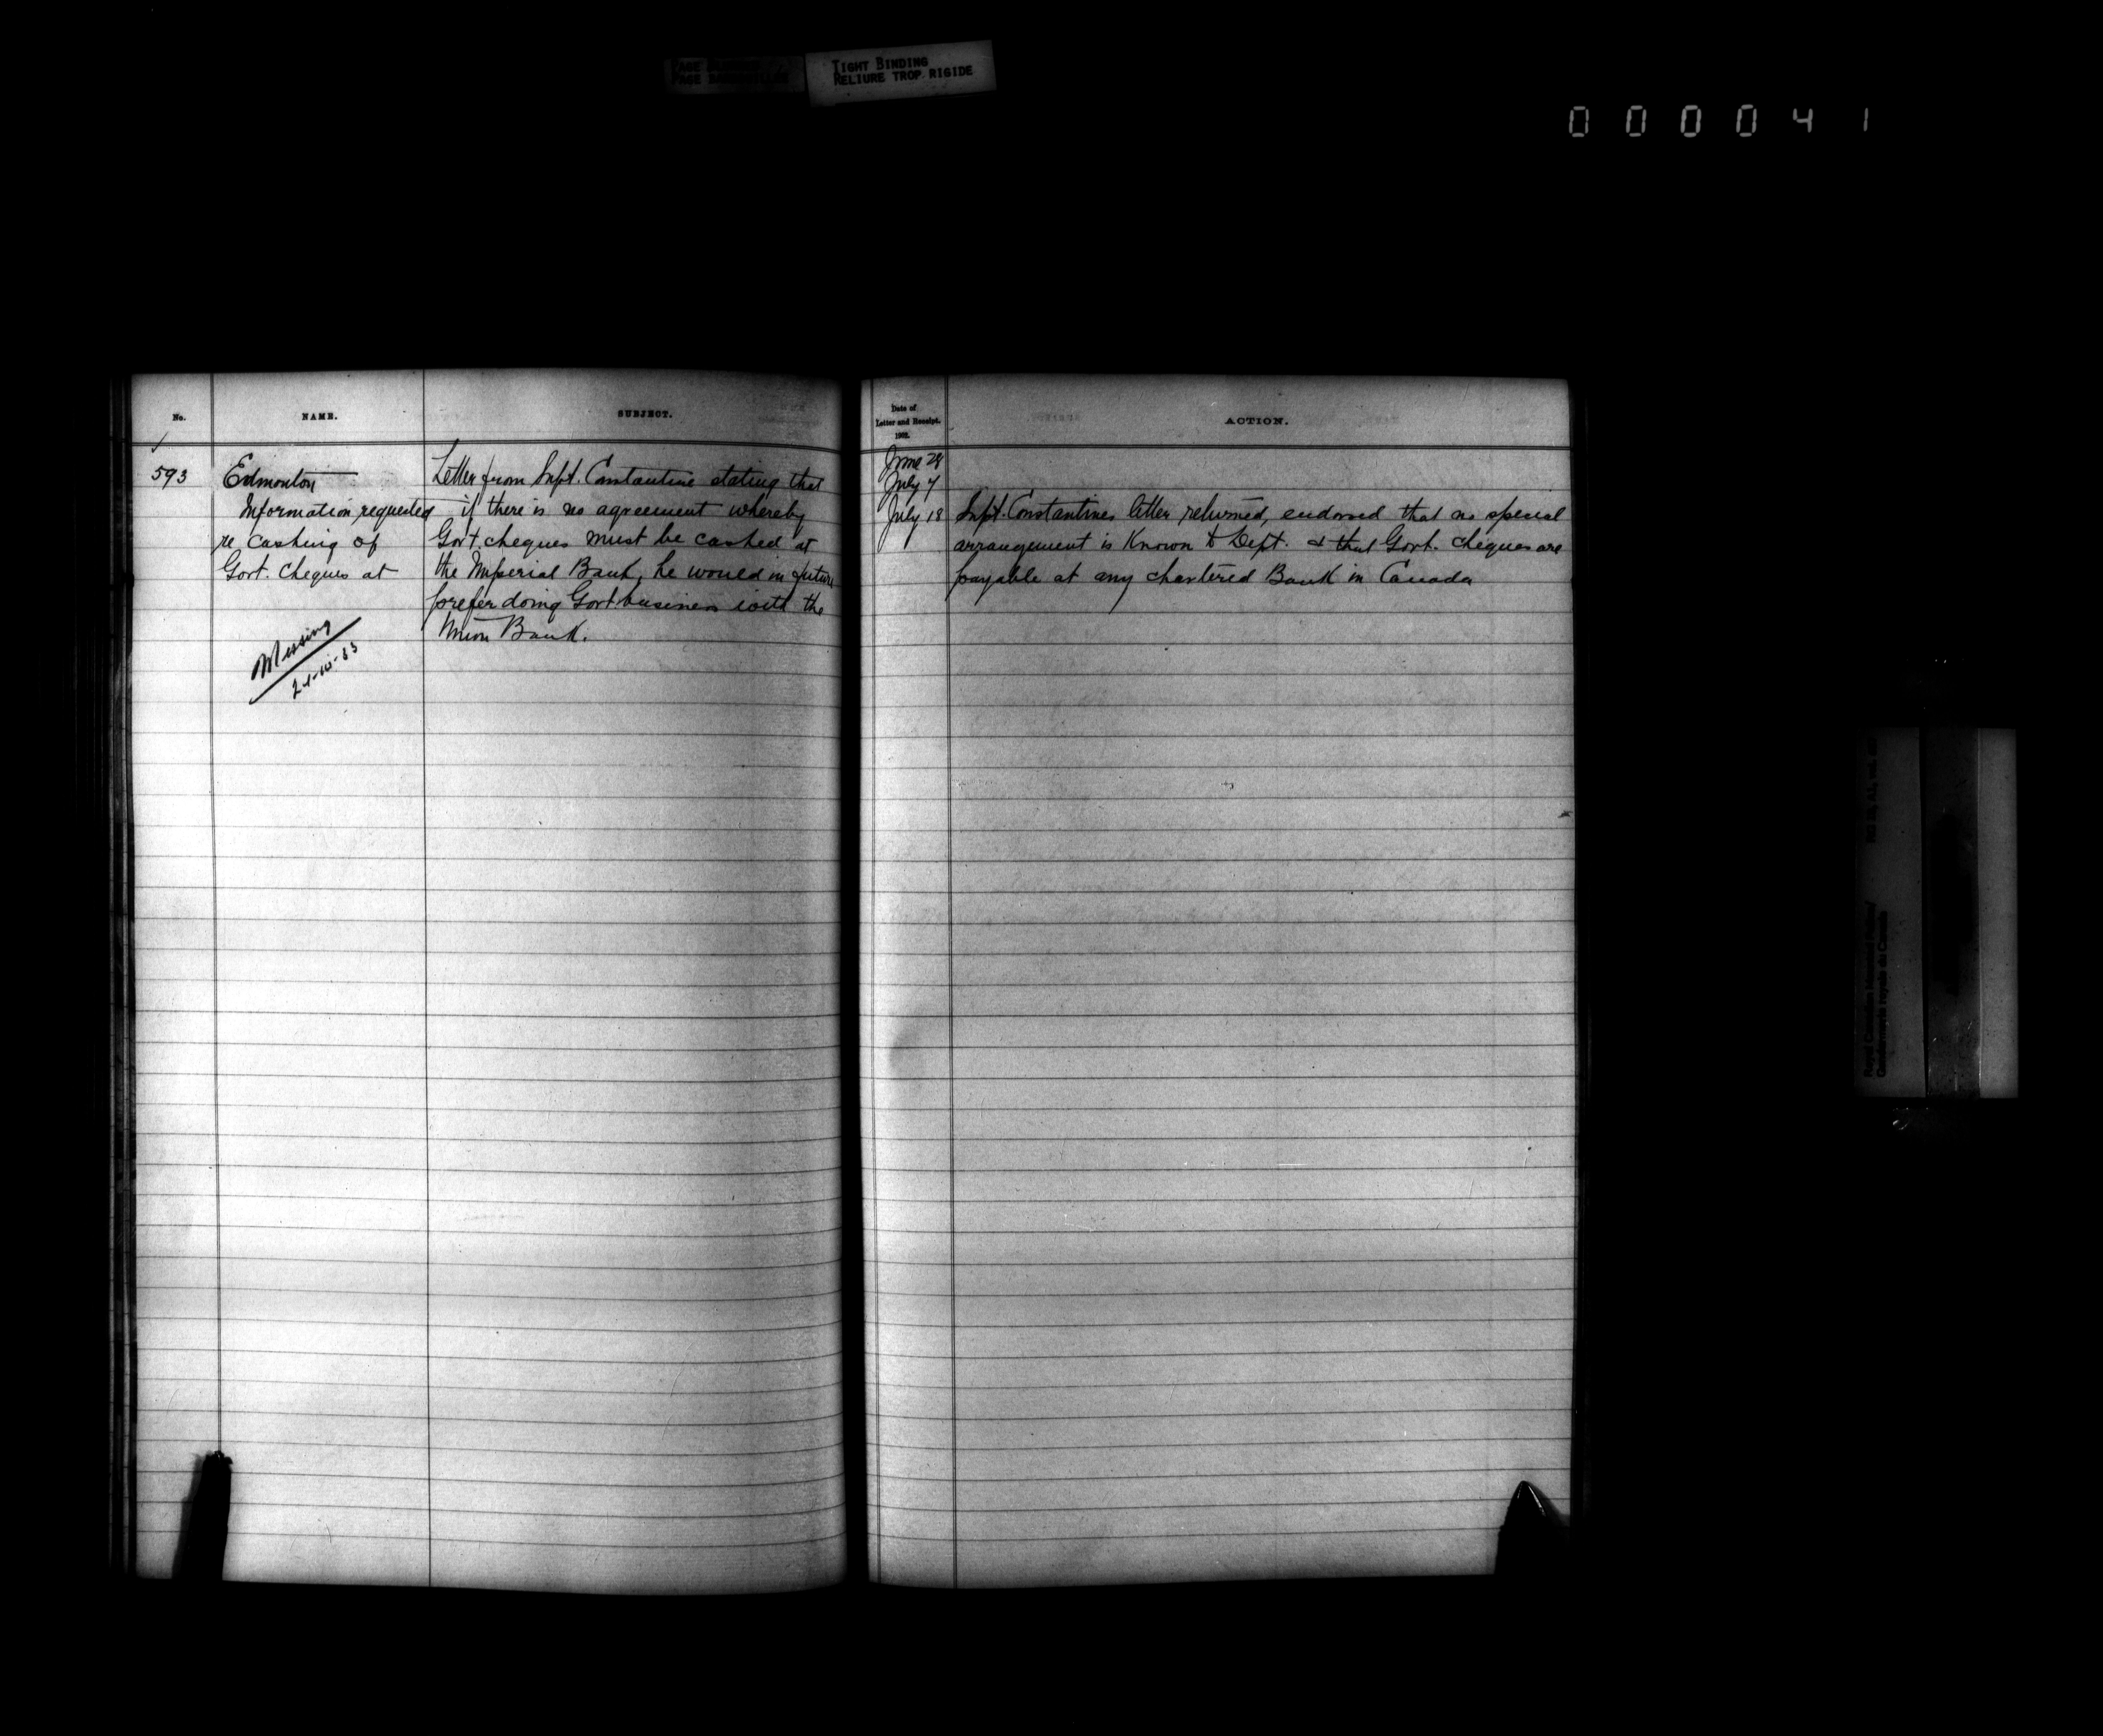 TIGHT BINDING
RELIURE TROP RIGIDE
000041
No.
NAME.
SUBJECT.
593
Edmonton
Information requested
re Cashing of
Govt. Cheques at
Missing
Letter from Supt. Constantine stating that
if there is no agreement whereby
Govt. cheques must be cashed at
the Imperial Bank, he would in future
prefer doing Govt business with the
Union Bank.
Date of
Letter and Receipt.
1902.
ACTION.
June 28
July 7
July 18
Supt. Constantines letter returned, endorsed that no special
arrangement is Known to Dept. & that Govt. cheques are
payable at any chartered Bank in Canada
Royal Canadian Mounted Police/
Gendarmerie royale du Canada